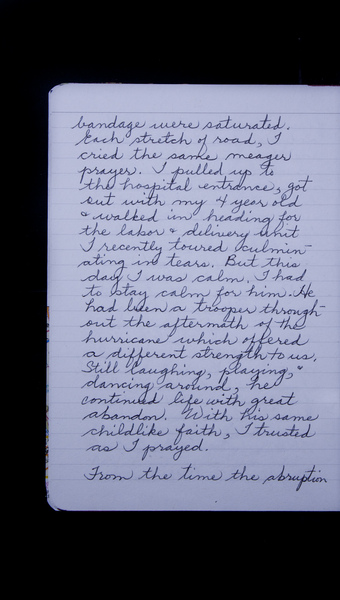 bandage were saturated.
Each stretch of road, I
cried the same meager
prayer. I pulled up to
the hospital entrance, got
out with my 4 year old
& walked in heading for
the labor & delivery unit
I recently toured culmin-
ating in tears. But this
day I was calm. I had
to stay calm for him. He
had been a trooper through-
out the aftermath of the
hurricane which offered
a different strength to us.
Still laughing, playing, &
dancing around, he
continued life with great
abandon. With his same
childlike faith, I trusted
as I prayed.
From the time the abruption